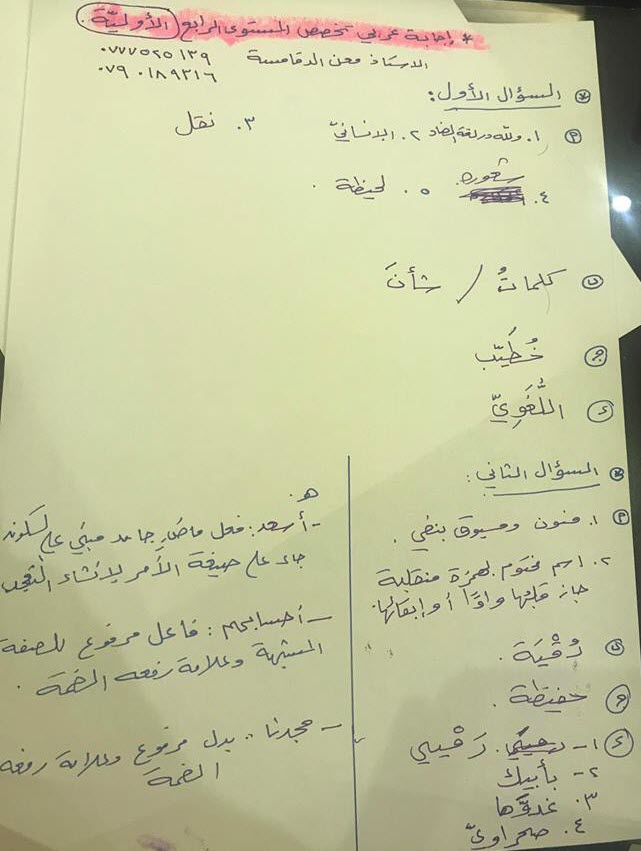 * إجابة عربي تخصص المستوى الرابع (الأوليّة).
الاستاذ معن الدقامسة ٠٧٧٧٥٢٥١٣٩
٠٧٩٠١٨٩٣١٦
* السؤال الأول:
(م ١. ولله در لغة الضاد ٢. الإنسانيّ ٣. نقل
٤. شعوره ٥. لحيظة.
ب) كلماتُ / شأنَ
ج) خُطَيِّب
د) اللُّغَوِيّ
* السؤال الثاني:
(م ١. منون ومسبوق بنفي.
٢. اسم مختوم بهمزة منقلبة
جاز قلبها واوًا أو إبقائها.
ب) دُقْيَة.
ج) حفيظة.
د) ١- رَحْيِي
٢- بأبيك
٣. غدوُّها
٤. صحراويّ
هـ.
- أسعد: فعل ماضٍ جامد مبني على السكون
جاء على صيغة الأمر لإنشاء التعجب
- أحسابهم: فاعل مرفوع للصفة
المشبهة وعلامة رفعه الضمة.
- مجدنا: بدل مرفوع وعلامة رفعه
الضمة